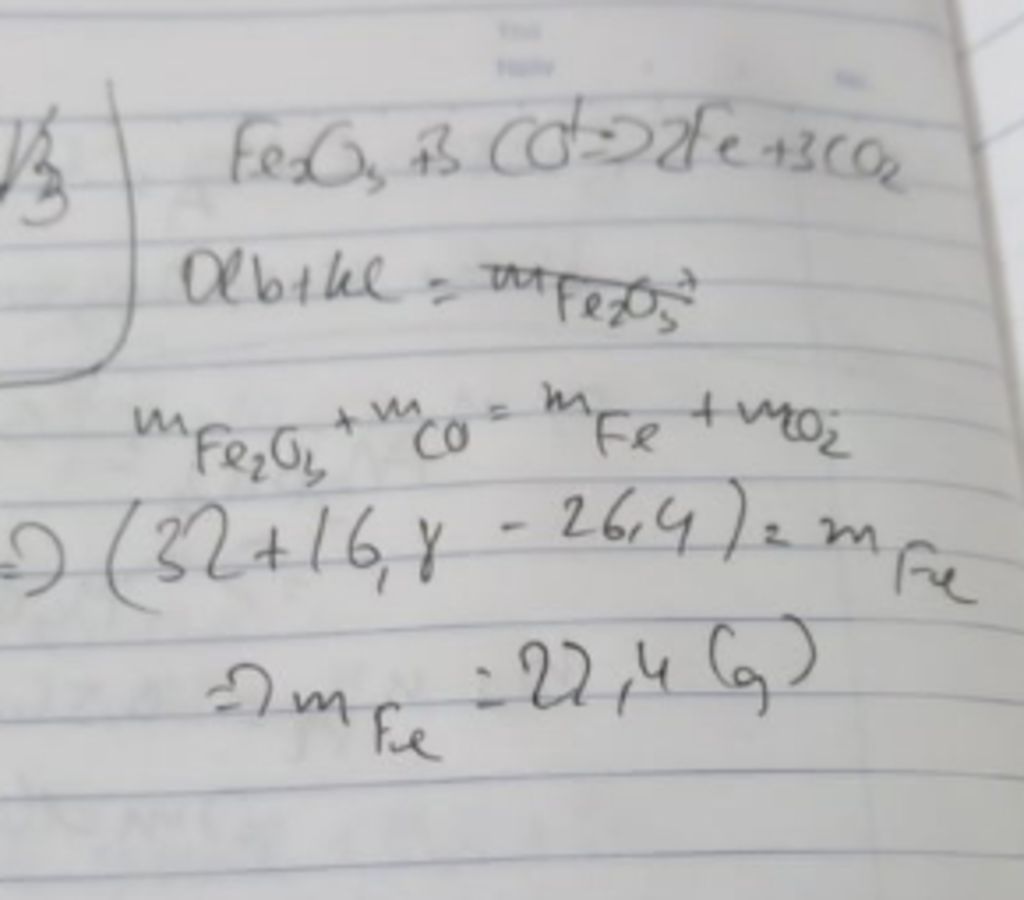 1/3
Fe₂O₃ + 3CO => 2Fe + 3CO₂
ĐLBTKL = m Fe₂O₃ +
m Fe₂O₃ + m CO = m Fe + m CO₂
=> (32 + 16,8 - 26,4) = m Fe
=> m Fe = 22,4 (g)